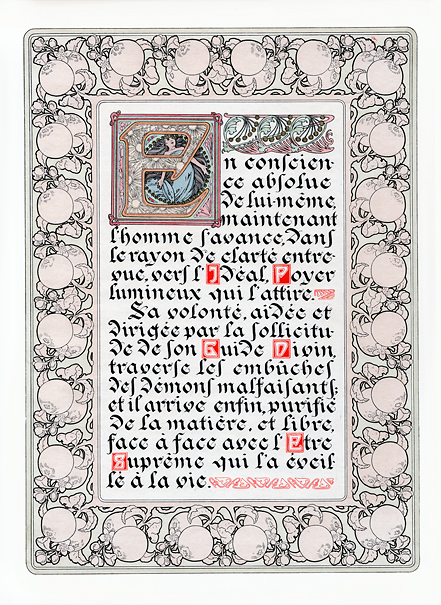 En conscien-
ce absolue
de lui-même,
maintenant
l'homme s'avance, dans
le rayon de clarté entre-
vue, vers l'Idéal, Foyer
lumineux qui l'attire.
Sa volonté, aidée et
dirigée par la sollicitu-
de de son Guide Divin,
traverse les embûches
des démons malfaisants;
et il arrive enfin, purifié
de la matière, et libre,
face à face avec l'Etre
Suprême qui l'a éveil-
lé à la vie.